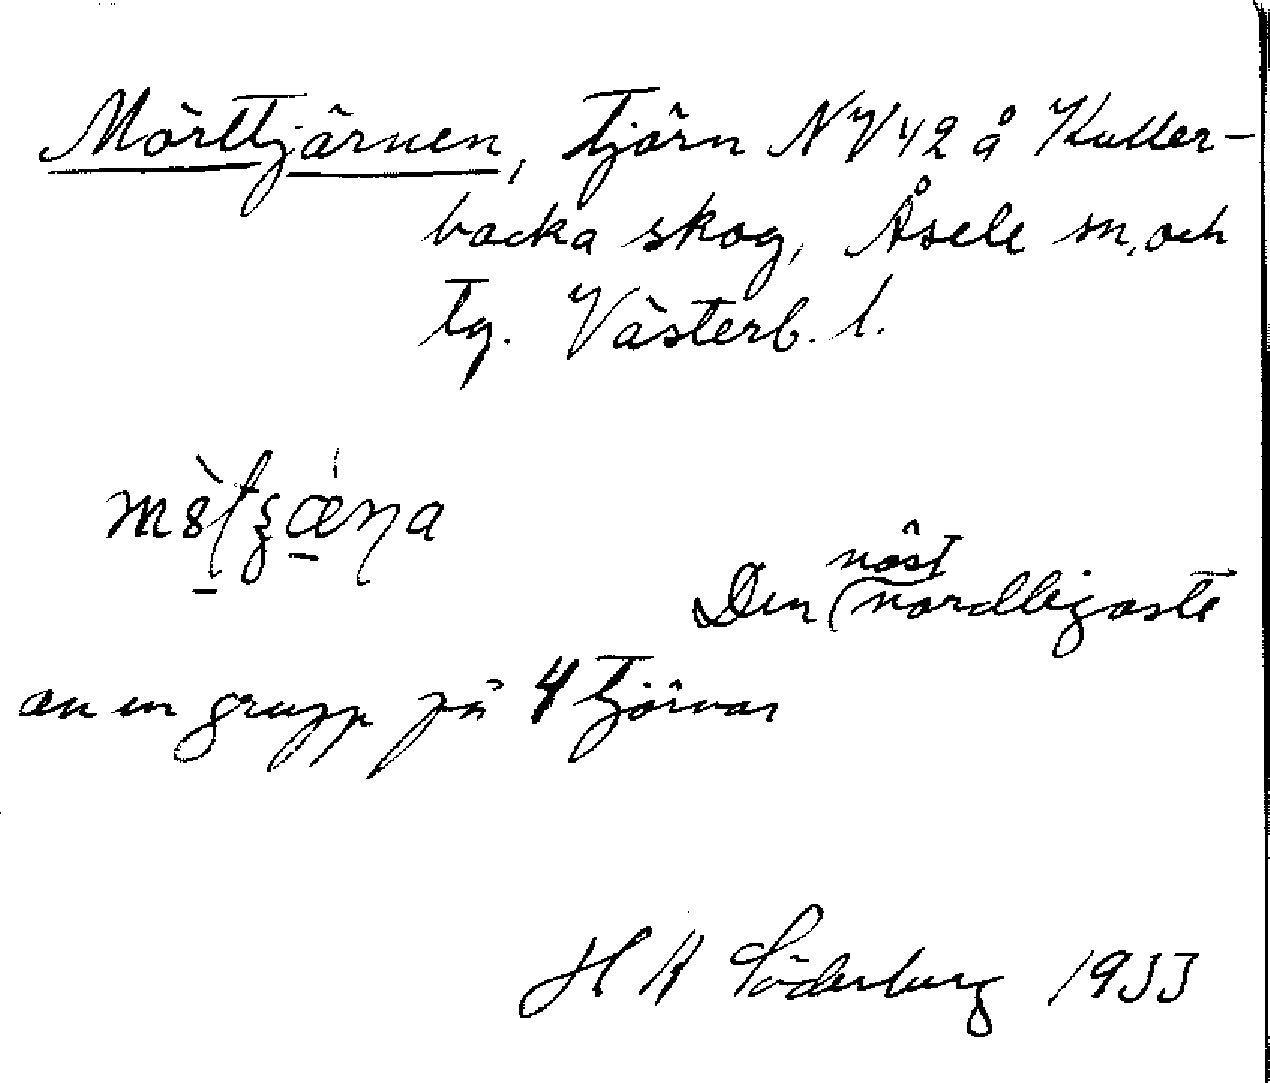 Mörttjärnen, tjärn NV42 å Kuller-
backa skog, Åsele sn. och
tg. Västerb. l.
Den näst nordligaste
av en grupp på 4 tjärnar
H A Söderberg 1933